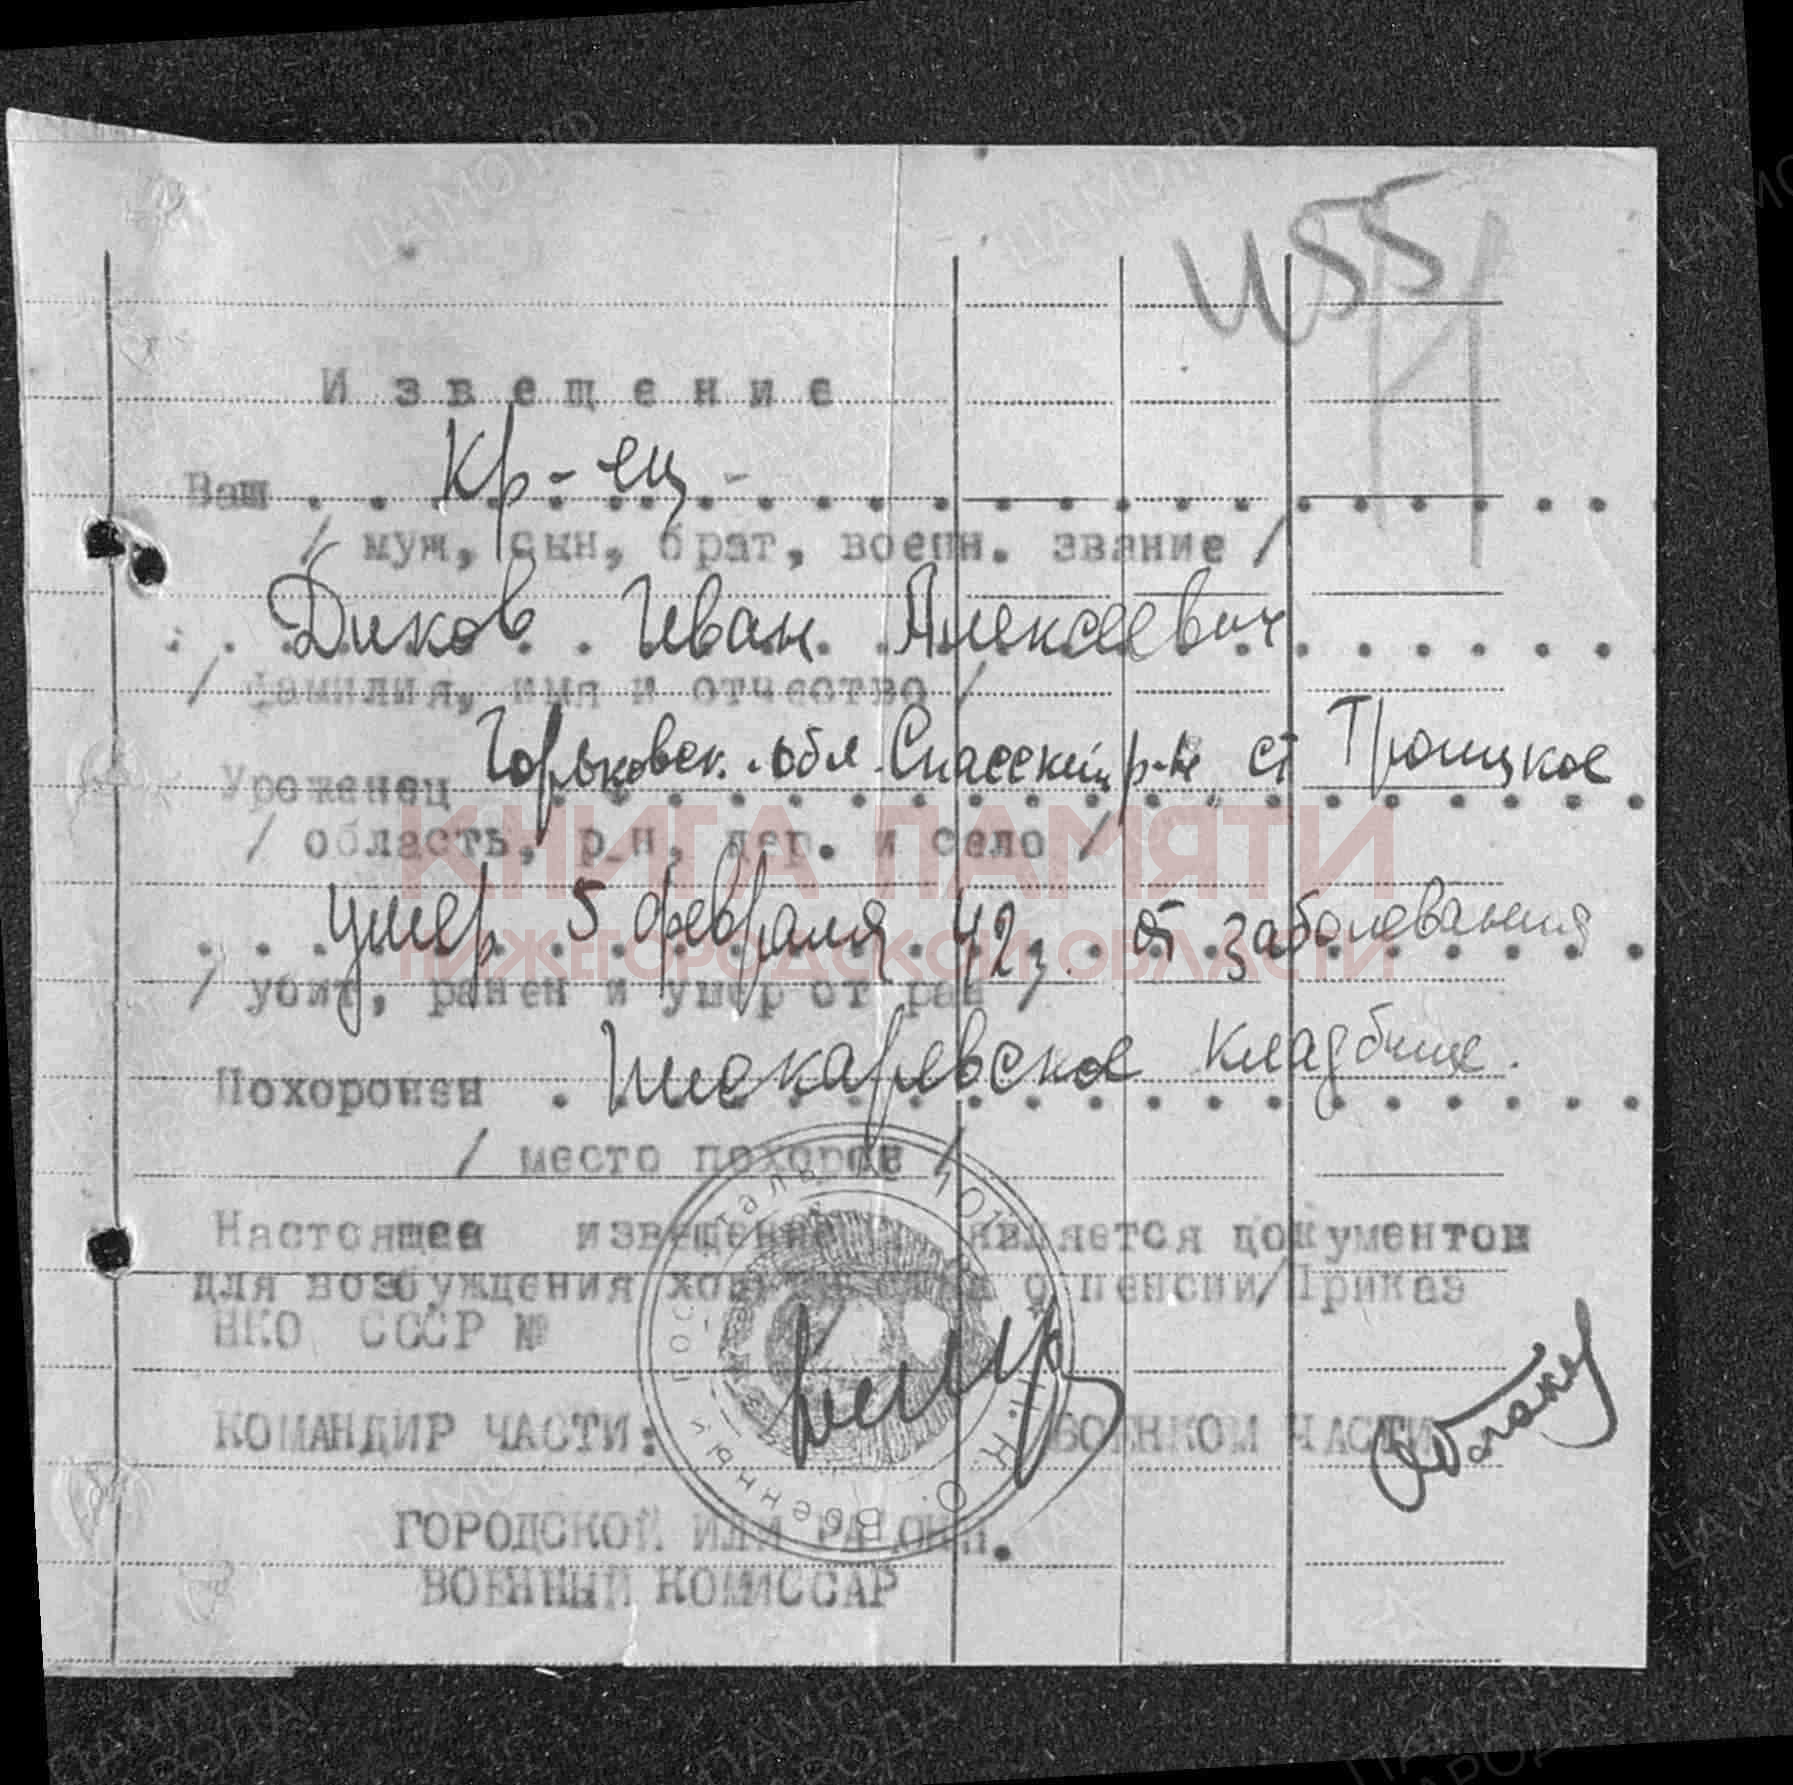 И55
И
Извещение
Ваш . . Кр-ец
/ муж, сын, брат, воен. звание /
Диков Иван Алексеевич
/ фамилия, имя и отчество /
Уроженец Горьковск. обл. Спасский р-н ст Троицкое
/ область, р-н, дер. и село /
КНИГА ПАМЯТИ
умер 5 февраля 42 г. от заболевания
НИЖЕГОРОДСКОЙ ОБЛАСТИ
/ убит, ранен и умер от ран /
Похоронен Пискаревское кладбище.
/ место похорон /
Настоящее извещение является документом
для возбуждения о пенсии/Приказ
НКО СССР №
КОМАНДИР ЧАСТИ: ВОЕНКОМ ЧАСТИ
Военный госпиталь Н.К.О.
ГОРОДСКОЙ ИЛИ РАЙОНН.
ВОЕННЫЙ КОМИССАР